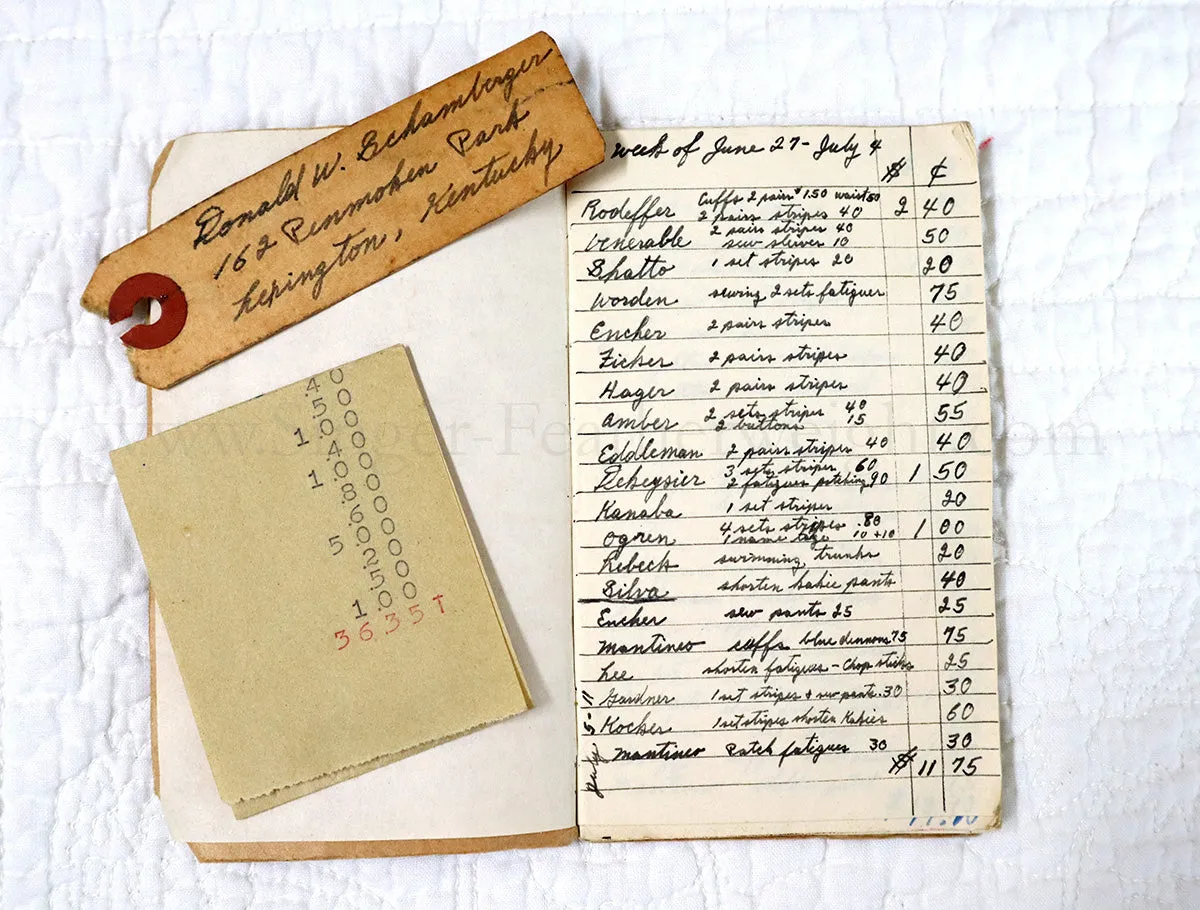 Donald W. Schamberger
162 Penmoken Park
Lexington, Kentucky
.40
.50
1.00
.40
1.00
.80
.60
5.00
.25
.50
1.00
36.35T
Week of June 27 - July 4
$ ¢
Rodeffer Cuffs 2 pairs $1.50 waist 50
2 pairs stripes 40 2 40
Venerable 2 pairs stripes 40
sew sleever 10 50
Shatto 1 set stripes 20 20
Worden sewing 2 sets fatigues 75
Encher 2 pairs stripes 40
Zicker 2 pairs stripes 40
Hager 2 pairs stripes 40
Amber 2 sets stripes 40
2 buttons 15 55
Eddleman 2 pairs stripes 40 40
Dekeysier 3 sets stripes 60
2 fatigues patching 90 1 50
Kanaba 1 set stripes 20
Ogren 4 sets stripes .80
1 name tage 10 +10 1 00
Rebeck swimming trunks 20
Silva shorten kakie pants 40
Encher sew pants 25 25
Mantineo cuffs blue dennons 75 75
Lee shorten fatigues - Chop sticks 25
Gardner 1 set stripes + sew pants .30 30
Kocker 1 set stripes shorten Kakies 60
Mantineo Patch fatigues 30 30
July 5-11
$ 11 75